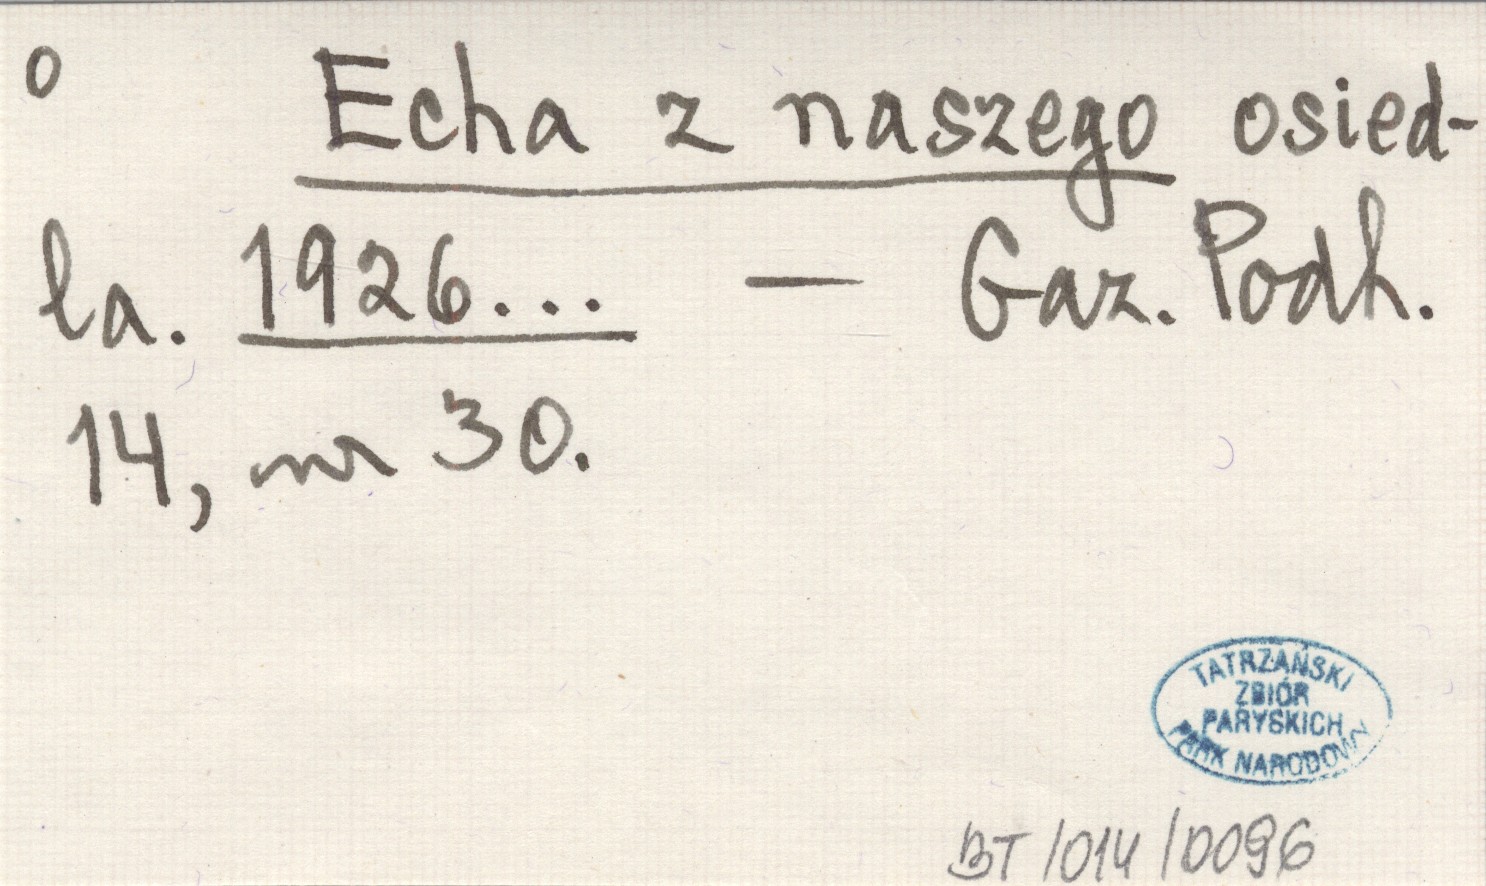 o Echa z naszego osied-
la. 1926... — Gaz. Podh.
14, nr 30.
TATRZAŃSKI
ZBIÓR
PARYSKICH
PARK NARODOWY
BT/014/0096